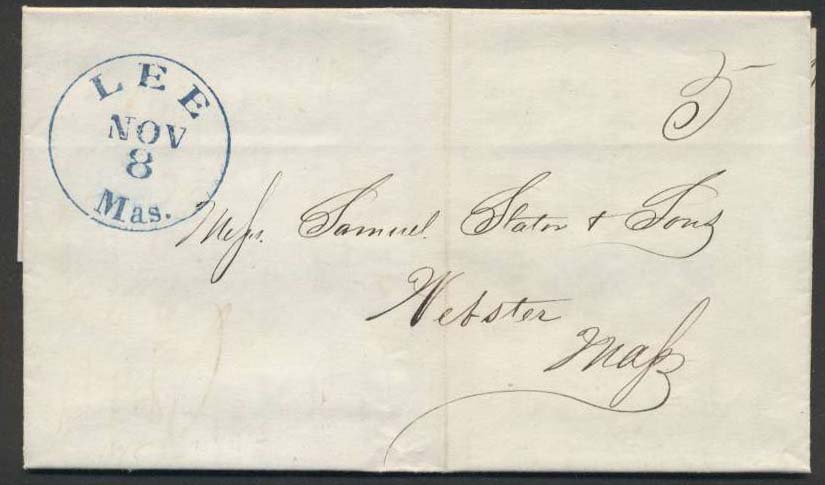 LEE
NOV
8
Mas.
5
Messrs. Samuel Slater & Sons
Webster
Mass